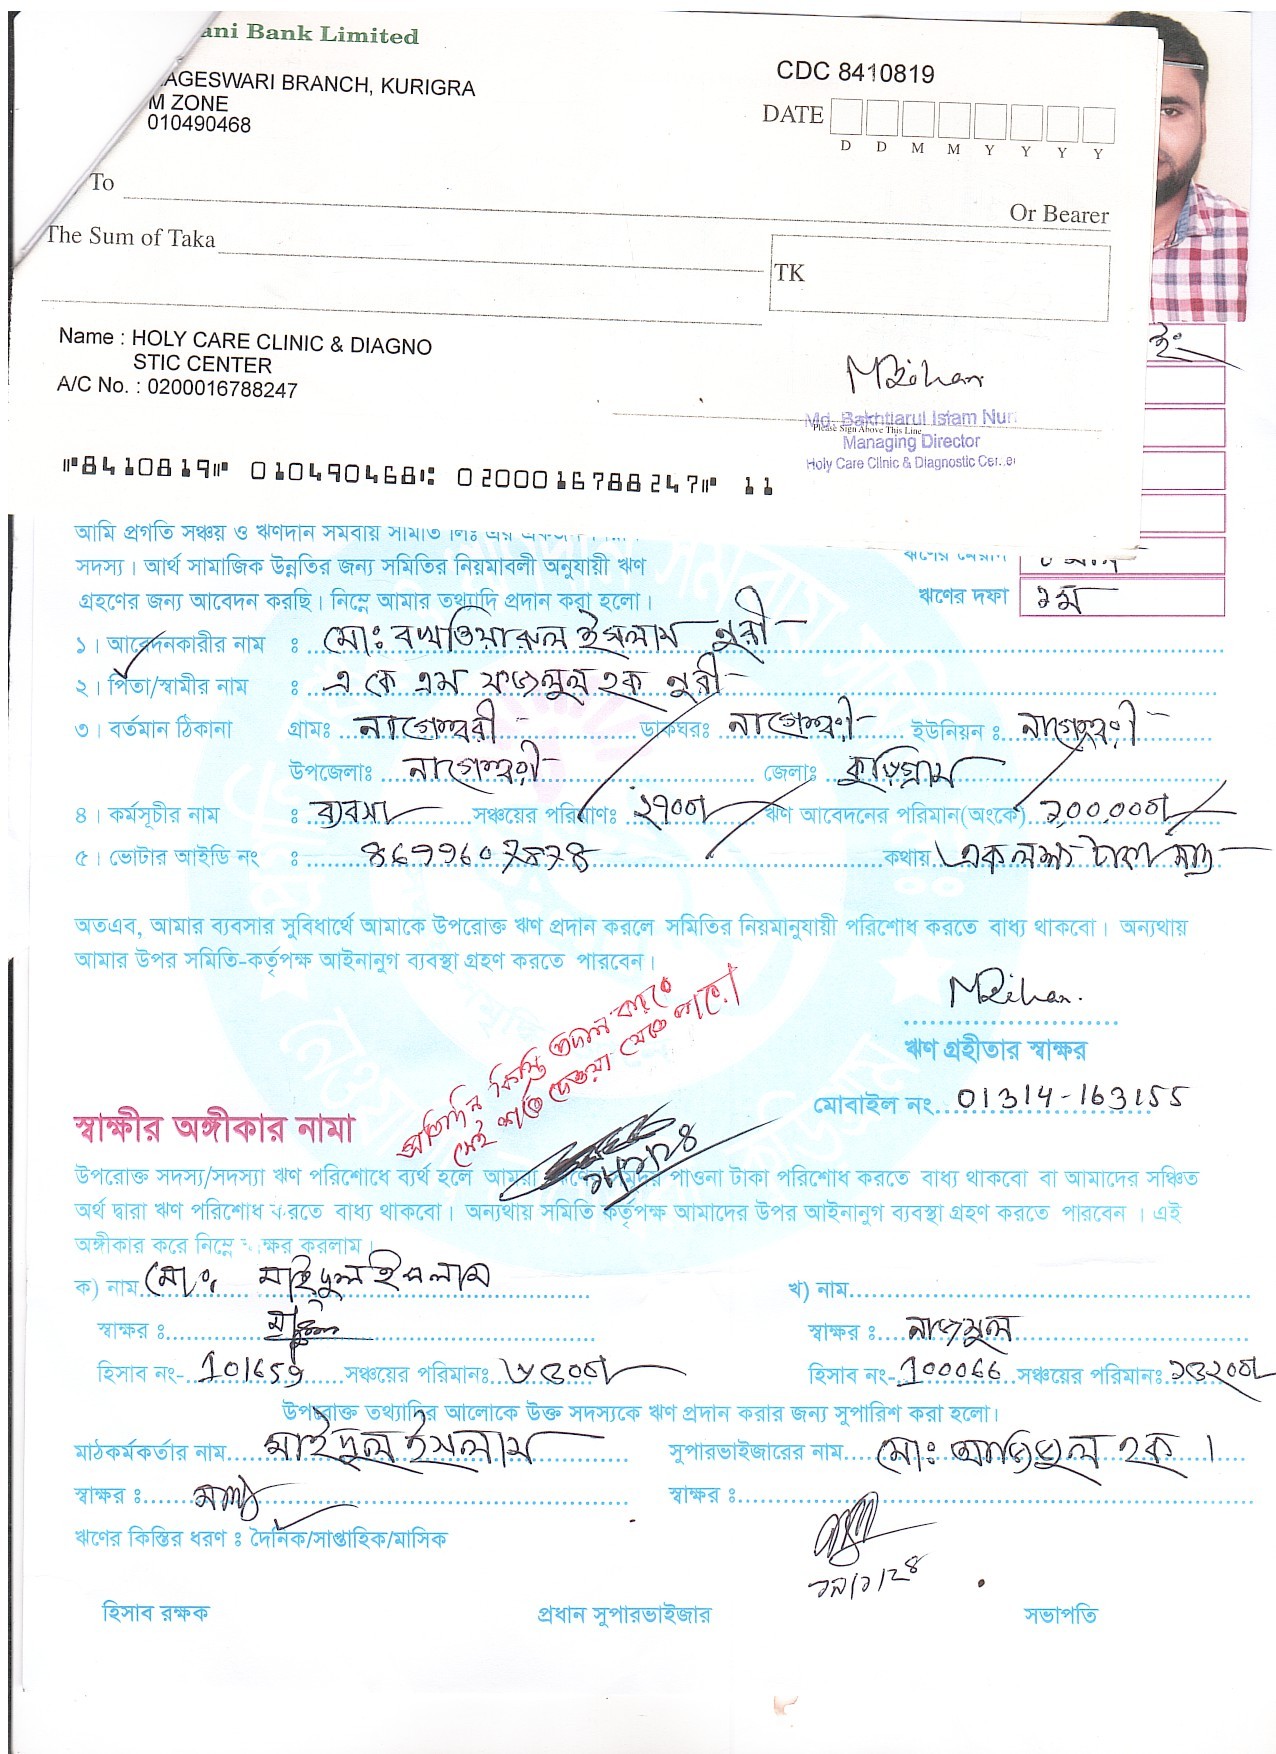 ani Bank Limited
AGESWARI BRANCH, KURIGRA
M ZONE
010490468
CDC 8410819
DATE
D D M M Y Y Y Y
To
Or Bearer
The Sum of Taka
TK
Name : HOLY CARE CLINIC & DIAGNO
STIC CENTER
A/C No. : 0200016788247
Md. Bakhtiarul Islam Nuri
Please Sign Above This Line
Managing Director
Holy Care Clinic & Diagnostic Center
⑈8410819⑈ 010490468⑆ 0200016788247⑈ 11
আমি প্রগতি সঞ্চয় ও ঋণদান সমবায় সমিতি লিঃ এর
সদস্য। আর্থ সামাজিক উন্নতির জন্য সমিতির নিয়মাবলী অনুযায়ী ঋণ
গ্রহণের জন্য আবেদন করছি। নিম্নে আমার তথ্যাদি প্রদান করা হলো।
ঋণের দফা ১ম
১। আবেদনকারীর নাম ঃ মোঃ বখতিয়ারুল ইসলাম নুরী
২। পিতা/স্বামীর নাম ঃ এ কে এম ফজলুল হক নুরী
৩। বর্তমান ঠিকানা গ্রামঃ নাগেশ্বরী ডাকঘরঃ নাগেশ্বরী ইউনিয়ন ঃ নাগেশ্বরী
উপজেলাঃ নাগেশ্বরী জেলাঃ কুড়িগ্রাম
৪। কর্মসূচীর নাম ঃ ব্যবসা সঞ্চয়ের পরিমাণঃ ২৭০০/ ঋণ আবেদনের পরিমান(অংকে) ১,০০,০০০/
৫। ভোটার আইডি নং ঃ 8699607878 কথায় একলক্ষ টাকা মাত্র
অতএব, আমার ব্যবসার সুবিধার্থে আমাকে উপরোক্ত ঋণ প্রদান করলে সমিতির নিয়মানুযায়ী পরিশোধ করতে বাধ্য থাকবো। অন্যথায়
আমার উপর সমিতি-কর্তৃপক্ষ আইনানুগ ব্যবস্থা গ্রহণ করতে পারবেন।
প্রতিদিন কিস্তি প্রদান করবে
সেই শর্তে দেওয়া যেতে পারে।
ঋণ গ্রহীতার স্বাক্ষর
মোবাইল নং 01314-163155
স্বাক্ষীর অঙ্গীকার নামা
উপরোক্ত সদস্য/সদস্যা ঋণ পরিশোধে ব্যর্থ হলে আমরা পাওনা টাকা পরিশোধ করতে বাধ্য থাকবো বা আমাদের সঞ্চিত
অর্থ দ্বারা ঋণ পরিশোধ করতে বাধ্য থাকবো। অন্যথায় সমিতি কর্তৃপক্ষ আমাদের উপর আইনানুগ ব্যবস্থা গ্রহণ করতে পারবেন । এই
অঙ্গীকার করে নিম্নে স্বাক্ষর করলাম।
ক) নাম মোঃ মাইদুল ইসলাম খ) নাম
স্বাক্ষর ঃ স্বাক্ষর ঃ নাজমুল
হিসাব নং- 101659 সঞ্চয়ের পরিমানঃ হিসাব নং- 100066 সঞ্চয়ের পরিমানঃ ১৩২০০/
উপরোক্ত তথ্যাদির আলোকে উক্ত সদস্যকে ঋণ প্রদান করার জন্য সুপারিশ করা হলো।
মাঠকর্মকর্তার নাম মাইদুল ইসলাম সুপারভাইজারের নাম মোঃ
হক।
স্বাক্ষর ঃ স্বাক্ষর ঃ
ঋণের কিস্তির ধরণ ঃ দৈনিক/সাপ্তাহিক/মাসিক
হিসাব রক্ষক প্রধান সুপারভাইজার সভাপতি